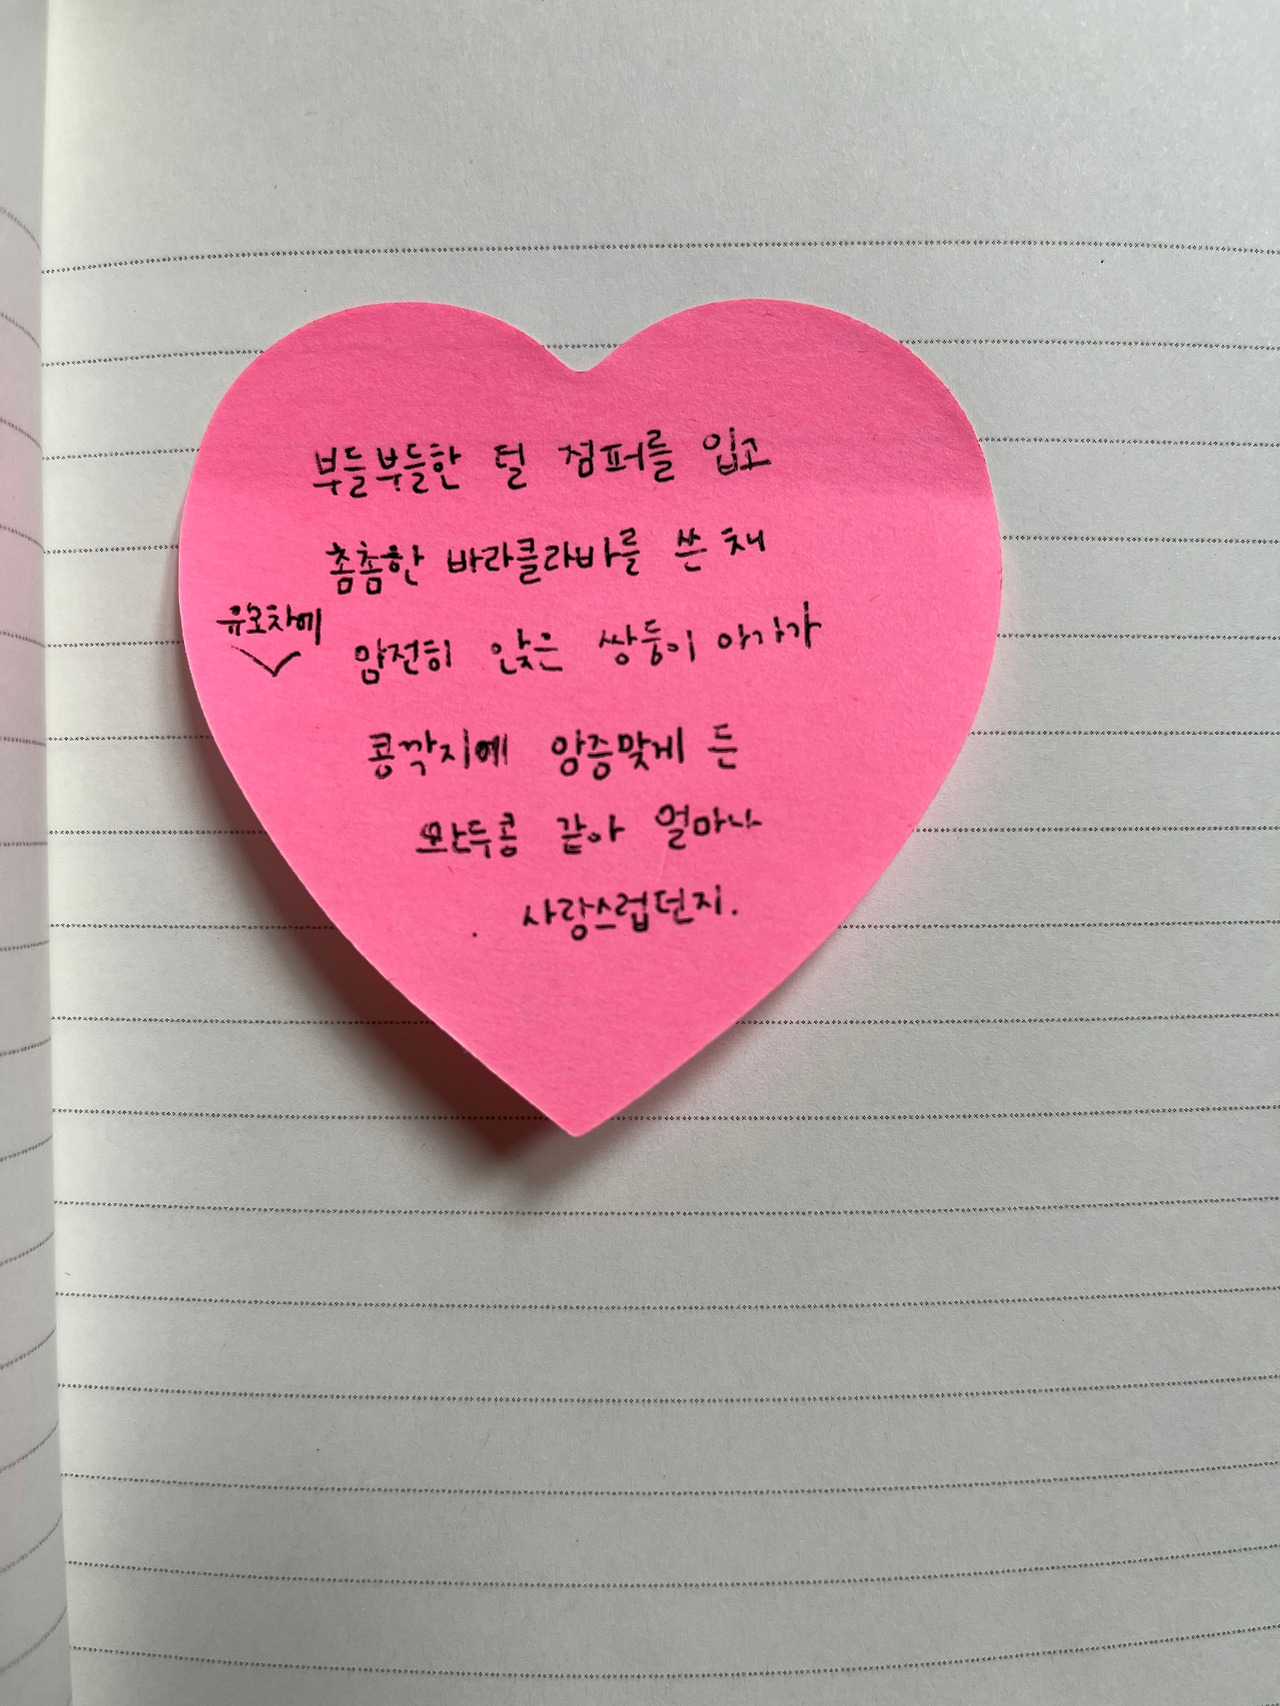 부들부들한 털 점퍼를 입고
촘촘한 바라클라바를 쓴 채
유모차에
얌전히 앉은 쌍둥이 아가가
콩깍지에 앙증맞게 든
완두콩 같아 얼마나
사랑스럽던지.